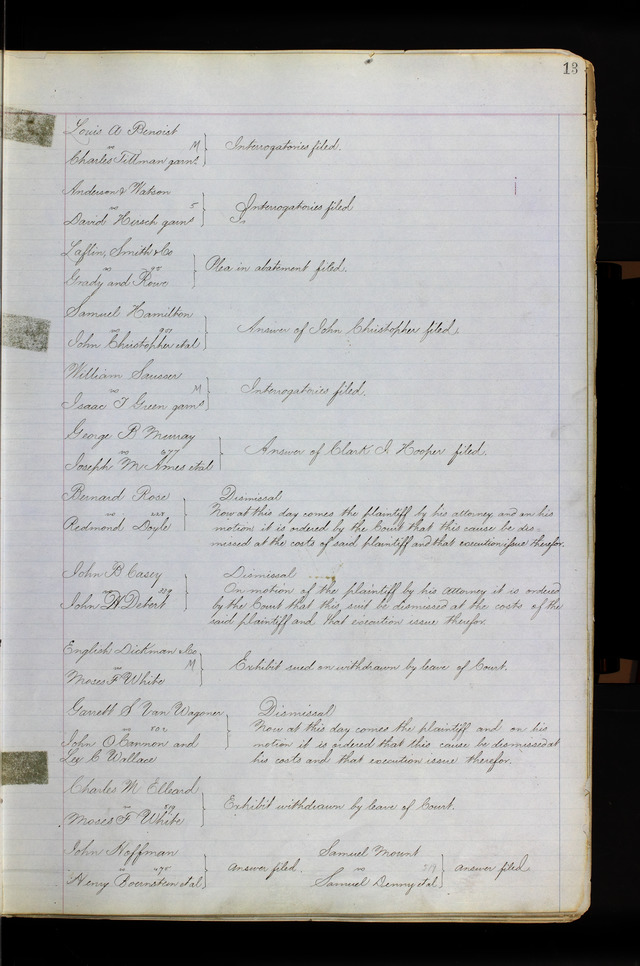 13
Louis A Benoist
vs M
Charles Tittman garns
Interrogatories filed.
Anderson & Watson
vs 5
David Hirsch garns
Interrogatories filed
Laflin, Smith & Co
vs
Grady and Rowe
Plea in abatement filed.
Samuel Hamilton
vs 901
John Christopher et al
Answer of John Christopher filed.
William Sausser
vs M
Isaac T Green garns
Interrogatories filed.
George B Murray
vs 677
Joseph M Ames et al
Answer of Clark I Hooper filed.
Bernard Rose
vs
Redmond Doyle
Dismissal
Now at this day comes the plaintiff by his attorney and on his
motion it is ordered by the Court that this cause be dis-
missed at the costs of said plaintiff and that execution issue therefor.
John B Casey
vs
John W Detert
Dismissal
On motion of the plaintiff by his attorney it is ordered
by the Court that this suit be dismissed at the costs of the
said plaintiff and that execution issue therefor.
English Dickman & Co
vs M
Moses F White
Exhibit sued on withdrawn by leave of Court.
Garrett S Van Wagoner
vs 502
John O Cannon and
Lev C Wallace
Dismissal
Now at this day comes the plaintiff and on his
motion it is ordered that this cause be dismissed at
his costs and that execution issue therefor.
Charles M Elleard
vs 519
Moses F White
Exhibit withdrawn by leave of Court.
John Hoffman
vs 475
Henry Boernstein et al
answer filed.
Samuel Mount
vs 519
Samuel Denny et al
answer filed